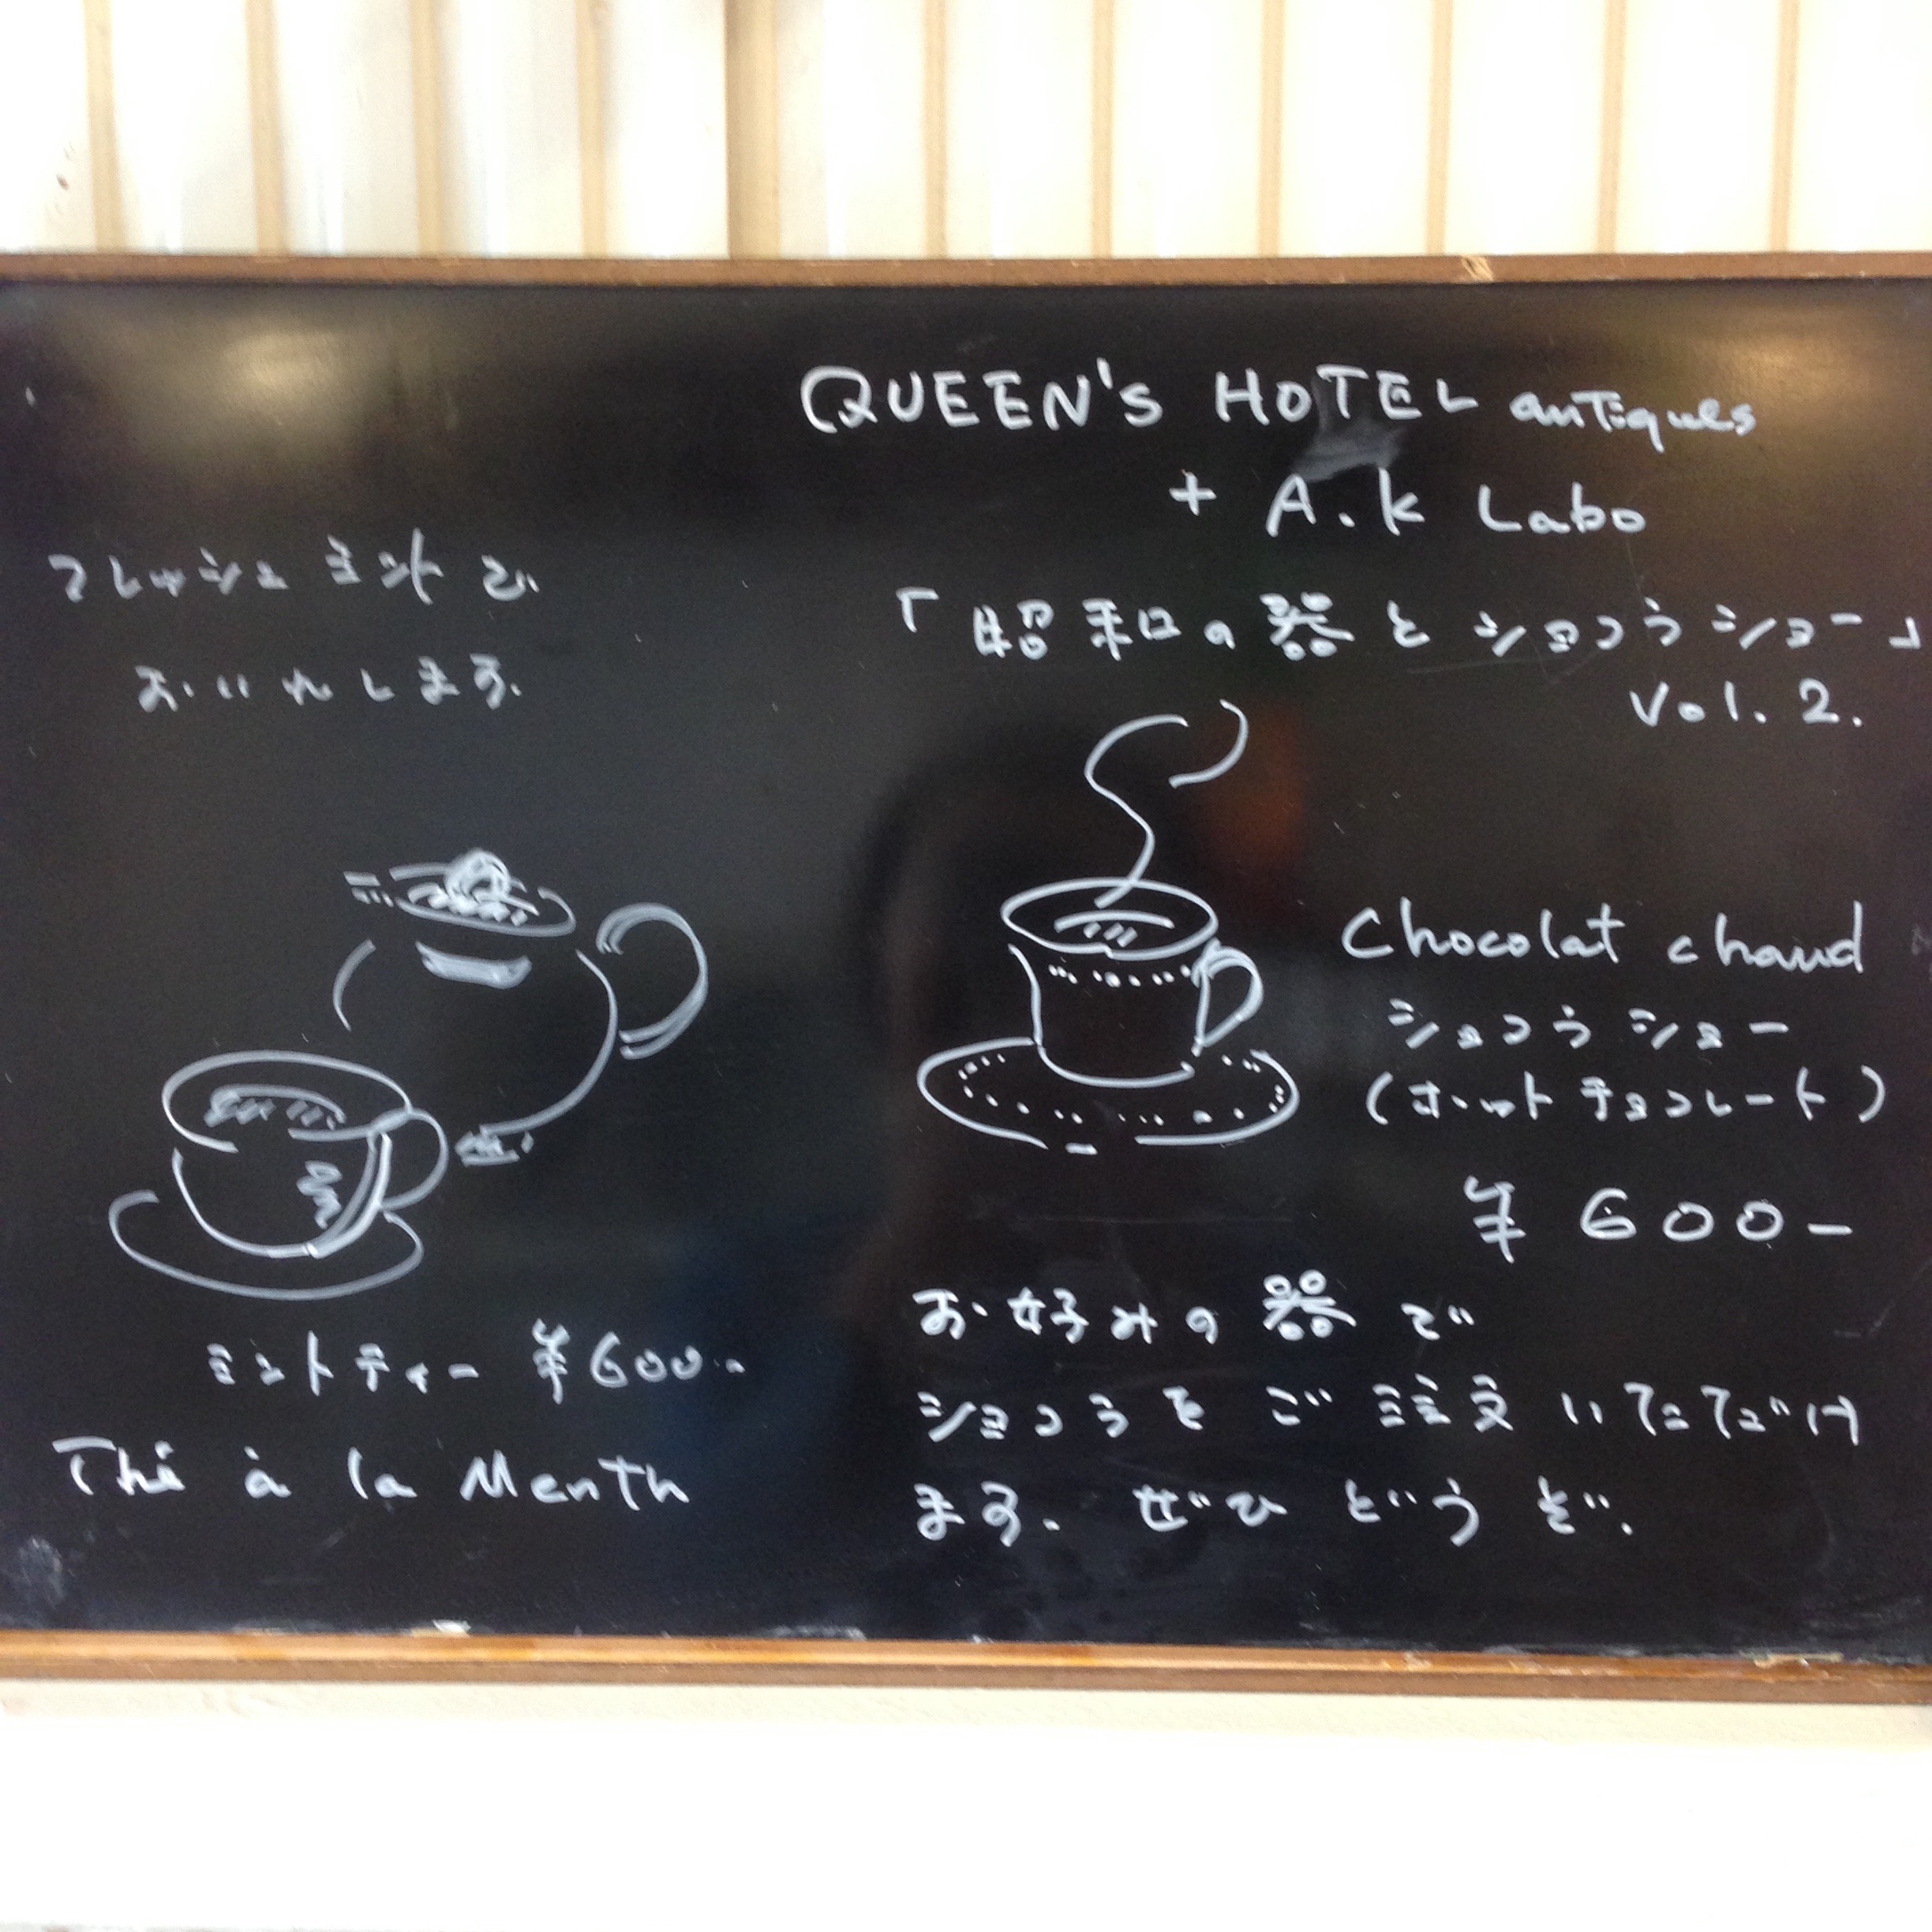 QUEEN's HOTEL antiques
+ A.k Labo
「昭和の器とショコラショー」
Vol. 2.
Chocolat chaud
ショコラショー
(ホットチョコレート)
¥600-
お好みの器で
ショコラをご注文いただけ
ます. ぜひどうぞ.
フレッシュミントで
おいれします.
ミントティー ¥600-
Thé à la Menth